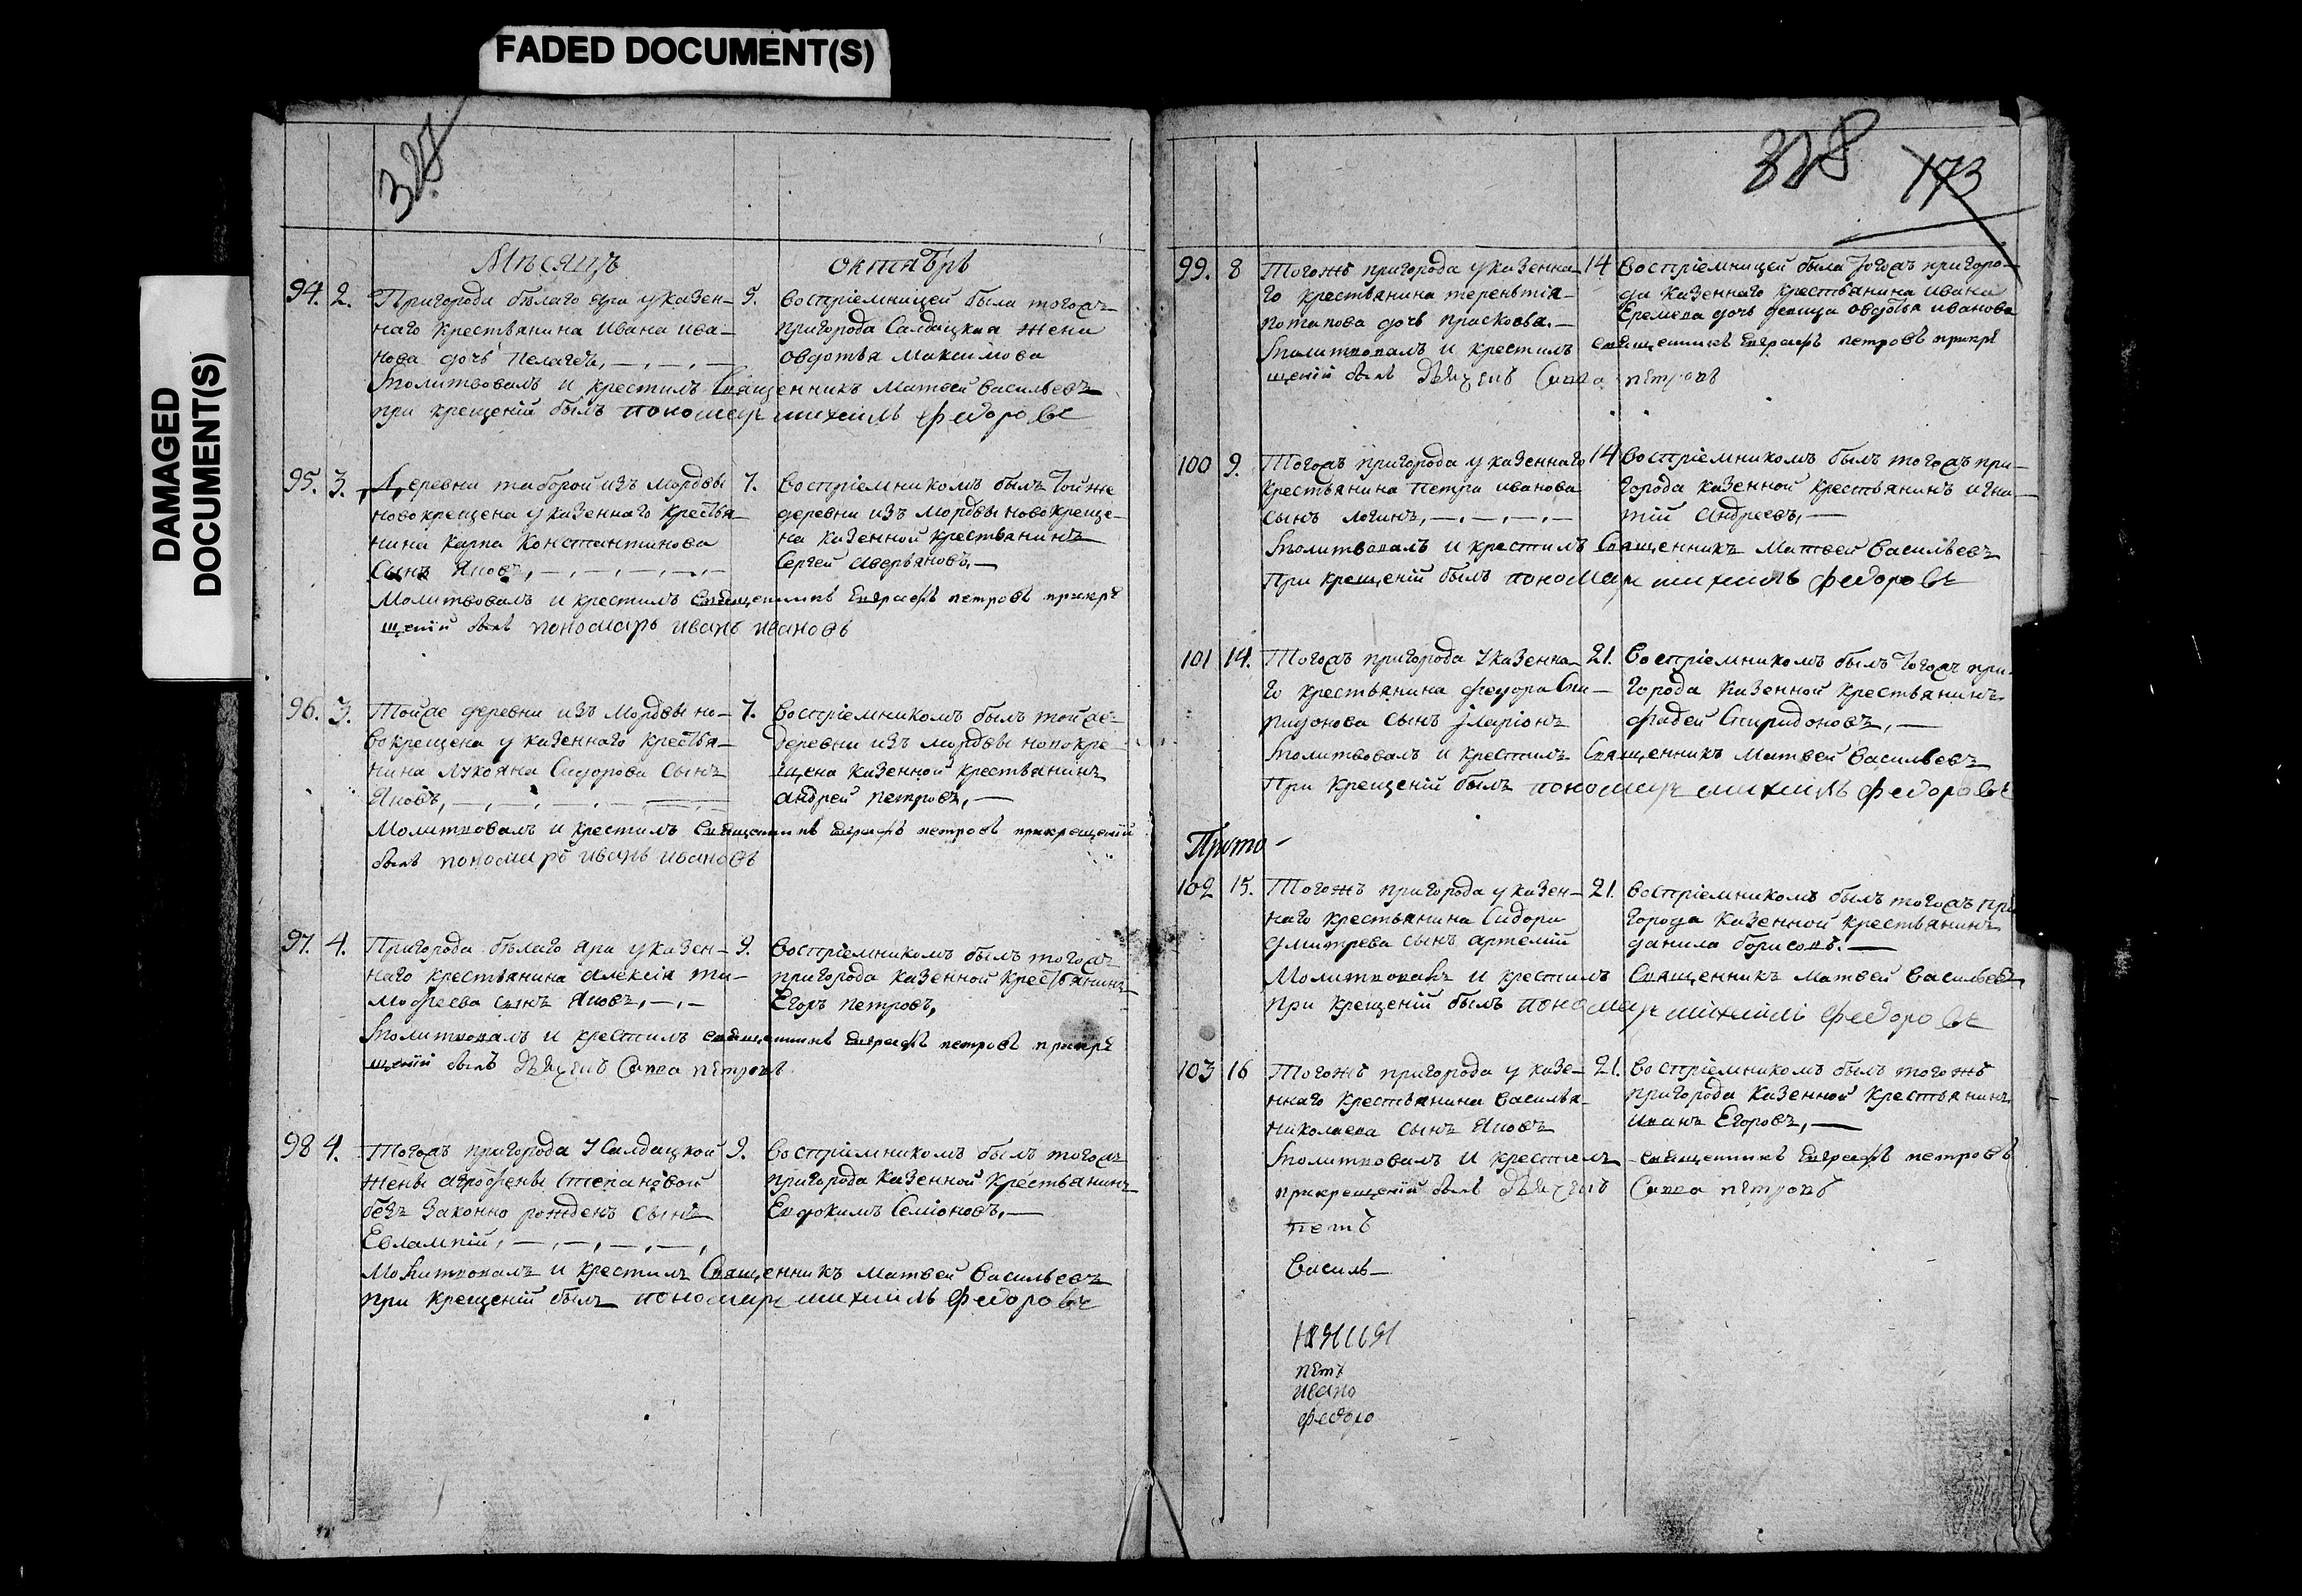 FADED DOCUMENT(S)
DAMAGED
DOCUMENT(S)
327
Мѣсяцъ октябрь
94. 2. Пригорода бѣлаго Яра у казен-
наго крестьянина Ивана Ива-
нова дочь Пелагея,
5. Воспріемницей была тогожъ
пригорода Салдацкая жена
овдотья Максимова
Молитвовалъ и крестилъ Священникъ Матвей Васильевъ
при крещеній былъ пономарь михаилъ федоровъ
95. 3. Деревни таборой изъ мордвы
новокрещена у казеннаго крестья-
нина Карпа Константинова
Сынъ Яковъ,
7. Воспріемникомъ былъ Тойже
деревни изъ мордвы новокреще-
на казенной крестьянинъ
Сергей Аверьяновъ,
Молитвовалъ и крестилъ священникъ Евграфъ петровъ прикре
щеній былъ пономарь иванъ ивановъ
96. 3. Тойже деревни изъ мордвы но-
вокрещена у казеннаго крестья-
нина Лукояна Сидорова Сынъ
Яковъ,
7. Воспріемникомъ былъ тойже
деревни изъ мордвы новокре-
щена казенной крестьянинъ
андрей петровъ,
Молитвовалъ и крестилъ священникъ Евграфъ петровъ прикрещеній
былъ пономарь иванъ ивановъ
97. 4. Пригорода бѣлаго яра у казен-
наго крестьянина алексія ти-
мофеева сынъ Яковъ,
9. Воспріемникомъ былъ тогожъ
пригорода казенной крестьянинъ
Егоръ петровъ,
Молитвовалъ и крестилъ священникъ Евграфъ петровъ прикре
щеній былъ дьячекъ Савва петровъ
98 4. Тогожъ пригорода У Салдацкой
жены агрофены Степановой
безъ законно рожденъ сынъ
Евлампій,
9. Воспріемникомъ былъ тогожъ
пригорода казенной крестьянинъ
Евдокимъ Семіоновъ,
Молитвовалъ и крестилъ Священникъ Матвей Васильевъ
при крещеній былъ пономарь михаилъ федоровъ
328 173
99. 8 Тогожъ пригорода у казенна-
го крестьянина терентія
потапова дочь прасковья.
14 Воспріемницей была Тогожъ пригоро-
да казеннаго крестьянина ивана
Еремева дочь девица овдотья иванова
Молитвовалъ и крестилъ священникъ Евграфъ петровъ прикре
щеній былъ дьячекъ Савва петровъ
100 9. Тогожъ пригорода у казеннаго
крестьянина петра иванова
сынъ логинъ,
14 Воспріемникомъ былъ тогожъ при-
города казенной крестьянинъ игна-
тій Андреевъ,
Молитвовалъ и крестилъ Священникъ Матвей Васильевъ
При крещеній былъ пономарь михаилъ федоровъ
101 14. Тогожъ пригорода У казенна-
го крестьянина федора Спи-
ридонова сынъ іларіонъ
21. Воспріемникомъ былъ Тогожъ при-
города казенной крестьянинъ
фадей Спиридоновъ,
Молитвовалъ и крестилъ Священникъ Матвей Васильевъ
При крещеній былъ пономарь михаилъ федоровъ
Прото
102 15. Тогожъ пригорода у казен-
наго крестьянина Сидора
дмитрева сынъ артемій
21. Воспріемникомъ былъ тогожъ при
города казенной крестьянинъ
данила борисовъ.
Молитвовалъ и крестилъ Священникъ Матвей Васильевъ
При крещеній былъ пономарь михаилъ федоровъ
103 16 Тогожъ пригорода у казе-
ннаго крестьянина Василья
николаева сынъ Яковъ
21. Воспріемникомъ былъ тогожъ
пригорода казенной крестьянинъ
иванъ Егоровъ,
Молитвовалъ и крестилъ священникъ Евграфъ петровъ
прикрещеній былъ дьячекъ Савва петровъ
петъ
Василь
петъ
ивано
федоро